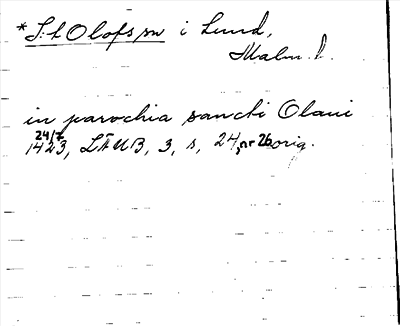 *S:t Olofs sn i Lund,
Malm. l.
in parochia sancti Olaui
24/7
1423, LÄUB, 3, s, 24, nr 26 orig.